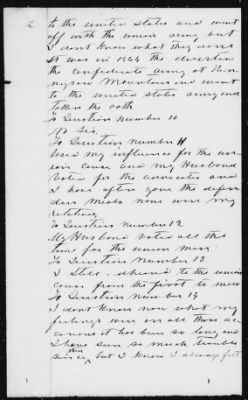 2
to the united states and went
off with the union army but
I dont know what they done
it was in 1864 the deserted
the Confederate army at
Mountains and went
to the united states army and
taken the oath
To Question Number 10
No Sir
To Question Number 11
Used my influence for the un-
ion cause and my Husband
voted for the
I have often gave the
meals none were my
relatives
To Question number 12
My Husband voted all the
time for the union men
To Question Number 13
I Still adhered to the union
cause from the first to
To Question Number 14
I dont know now what my
feelings were on all those
it has bin so long and
I have seen so much trouble
since then but I know I always felt